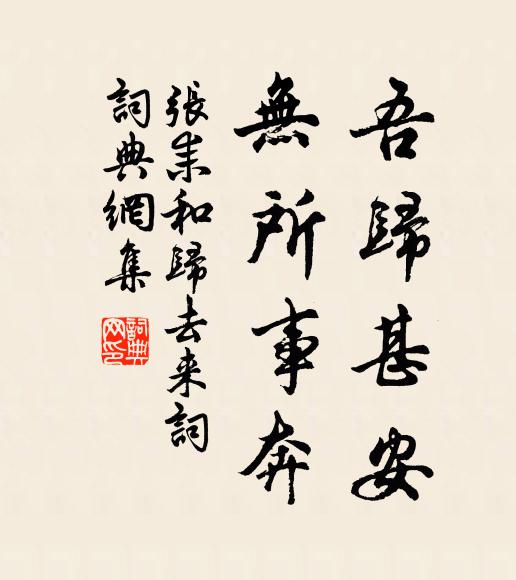 吾歸甚安
無所事奔
張耒和歸去来詞
詞典網集
詞典
网印